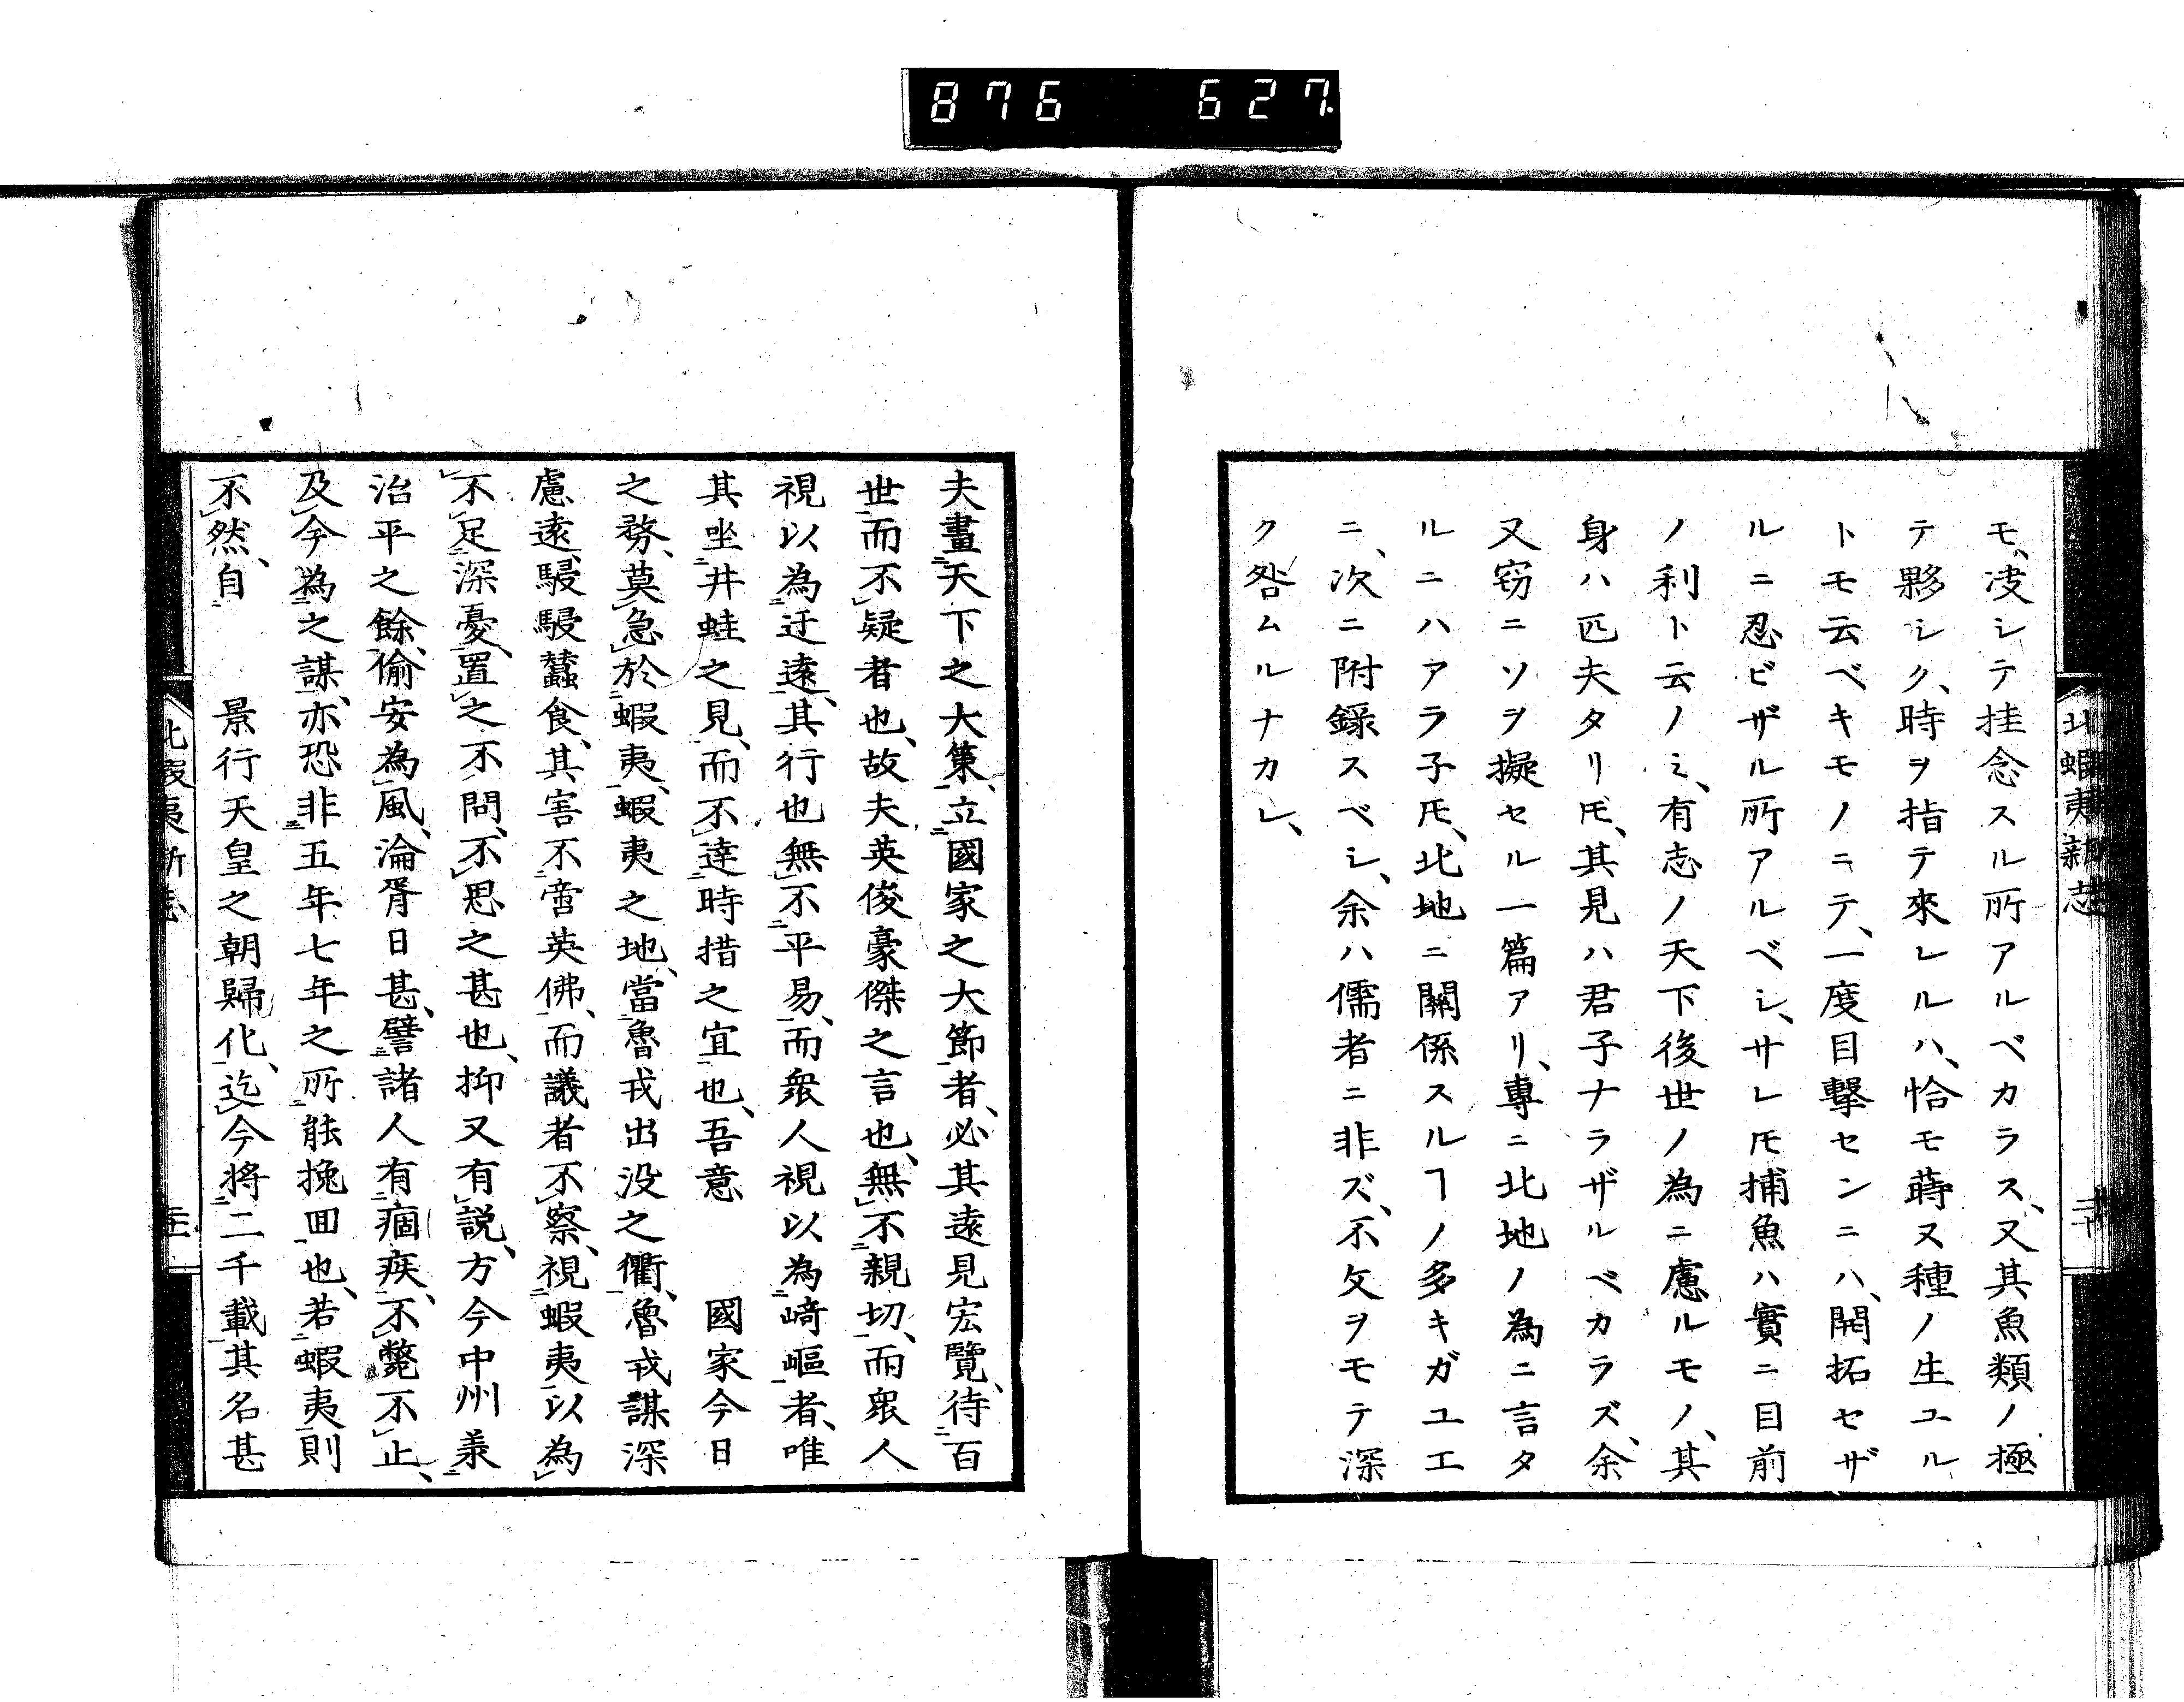 876 627
北蝦夷新志
モ、決シテ挂念スル所アルベカラス、又其魚類ノ極
テ夥シク、時ヲ指テ來レルハ、恰モ蒔ヌ種ノ生ユル
トモ云ベキモノニテ、一度目擊センニハ、開拓セザ
ルニ忍ビザル所アルベシ、サレ𪜈捕魚ハ實ニ目前
ノ利ト云ノミ、有志ノ天下後世ノ為ニ慮ルモノ、其
身ハ匹夫タリ𪜈、其見ハ君子ナラザルベカラズ、余
又窃ニソヲ擬セル一篇アリ、專ニ北地ノ為ニ言タ
ルニハアラ子𪜈、北地ニ關係スルヿノ多キガユエ
ニ、次ニ附錄スベシ、余ハ儒者ニ非ズ、不文ヲモテ深
ク咎ムルナカレ、
夫畫天下之大策、立國家之大節者、必其遠見宏覽、待百
世而不疑者也、故夫英俊豪傑之言也、無不親切、而眾人
視以為迂遠、其行也無不平易、而眾人視以為崎嶇者、唯
其坐井蛙之見、而不達時措之宜也、吾意 國家今日
之務、莫急於蝦夷、蝦夷之地、當魯戎出没之衢、魯戎謀深
慮遠、駸駸蠶食、其害不啻英佛、而議者不察、視蝦夷以為
不足深憂、置之不問、不思之甚也、抑又有説、方今中州兼
治平之餘、偷安為風、淪胥日甚、譬諸人有痼疾、不斃不止、
及今為之謀、亦恐非五年七年之所能挽回也、若蝦夷則
不然、自 景行天皇之朝歸化、迄今將二千載其名甚
北蝦夷新志